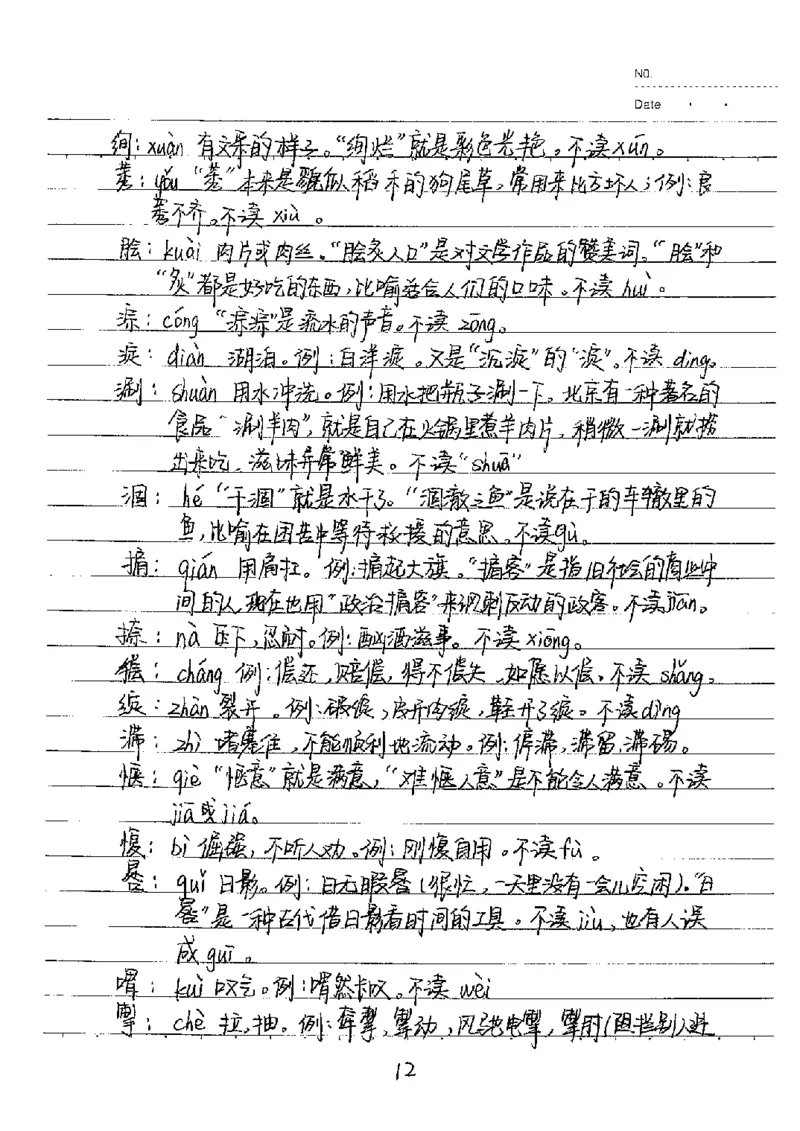 NO.
Date
绚：xuàn 有文采的样子。“绚烂”就是彩色光艳。不读xún。
莠：yǒu “莠”本来是貌似稻禾的狗尾草，常用来比方坏人；例：良
莠不齐。不读 xiù 。
脍：kuài 肉片或肉丝。“脍炙人口”是对文学作品的赞美词。“脍”和
“炙”都是好吃的东西，比喻适合人们的口味。不读 huì 。
淙：cóng “淙淙”是流水的声音。不读 zōng。
淀：diàn 湖泊。例：白洋淀。又是“沉淀”的“淀”。不读 dìng。
涮：shuàn 用水冲洗。例：用水把瓶子涮一下。北京有一种著名的
食品“涮羊肉”，就是自己在火锅里煮羊肉片，稍微一涮就捞
出来吃，滋味异常鲜美。不读“shuā”
涸：hé “干涸”就是水干了。“涸辙之鱼”是说在干的车辙里的
鱼，比喻在困苦中等待救援的意思。不读gù。
掮：qián 用肩扛。例：掮起大旗。“掮客”是指旧社会的商业中
间的人，现在也用“政治掮客”来讽刺反动的政客。不读jiān。
捺：nà 压下，忍耐。例：酗酒滋事。不读 xiōng。
偿：cháng 例：偿还，赔偿，得不偿失，如愿以偿。不读 shǎng。
绽：zhàn 裂开。例：破绽，皮开肉绽，鞋开了绽。不读dìng
滞：zhì 堵塞住，不能顺利地流动。例：停滞，滞留，滞碍。
惬：qiè “惬意”就是满意，“难惬人意”是不能令人满意。不读
jiā或jiá。
愎：bì 倔强，不听人劝。例：刚愎自用。不读fù 。
晷：guǐ 日影。例：日无暇晷（很忙，一天里没有一会儿空闲）。“日
晷”是一种古代借日影看时间的工具。不读jiù，也有人误
成guī。
喟：kuì 叹气。例：喟然长叹。不读 wèi
掣：chè 拉，抽。例：牵掣，掣动，风驰电掣，掣肘（阻拦别人进
12